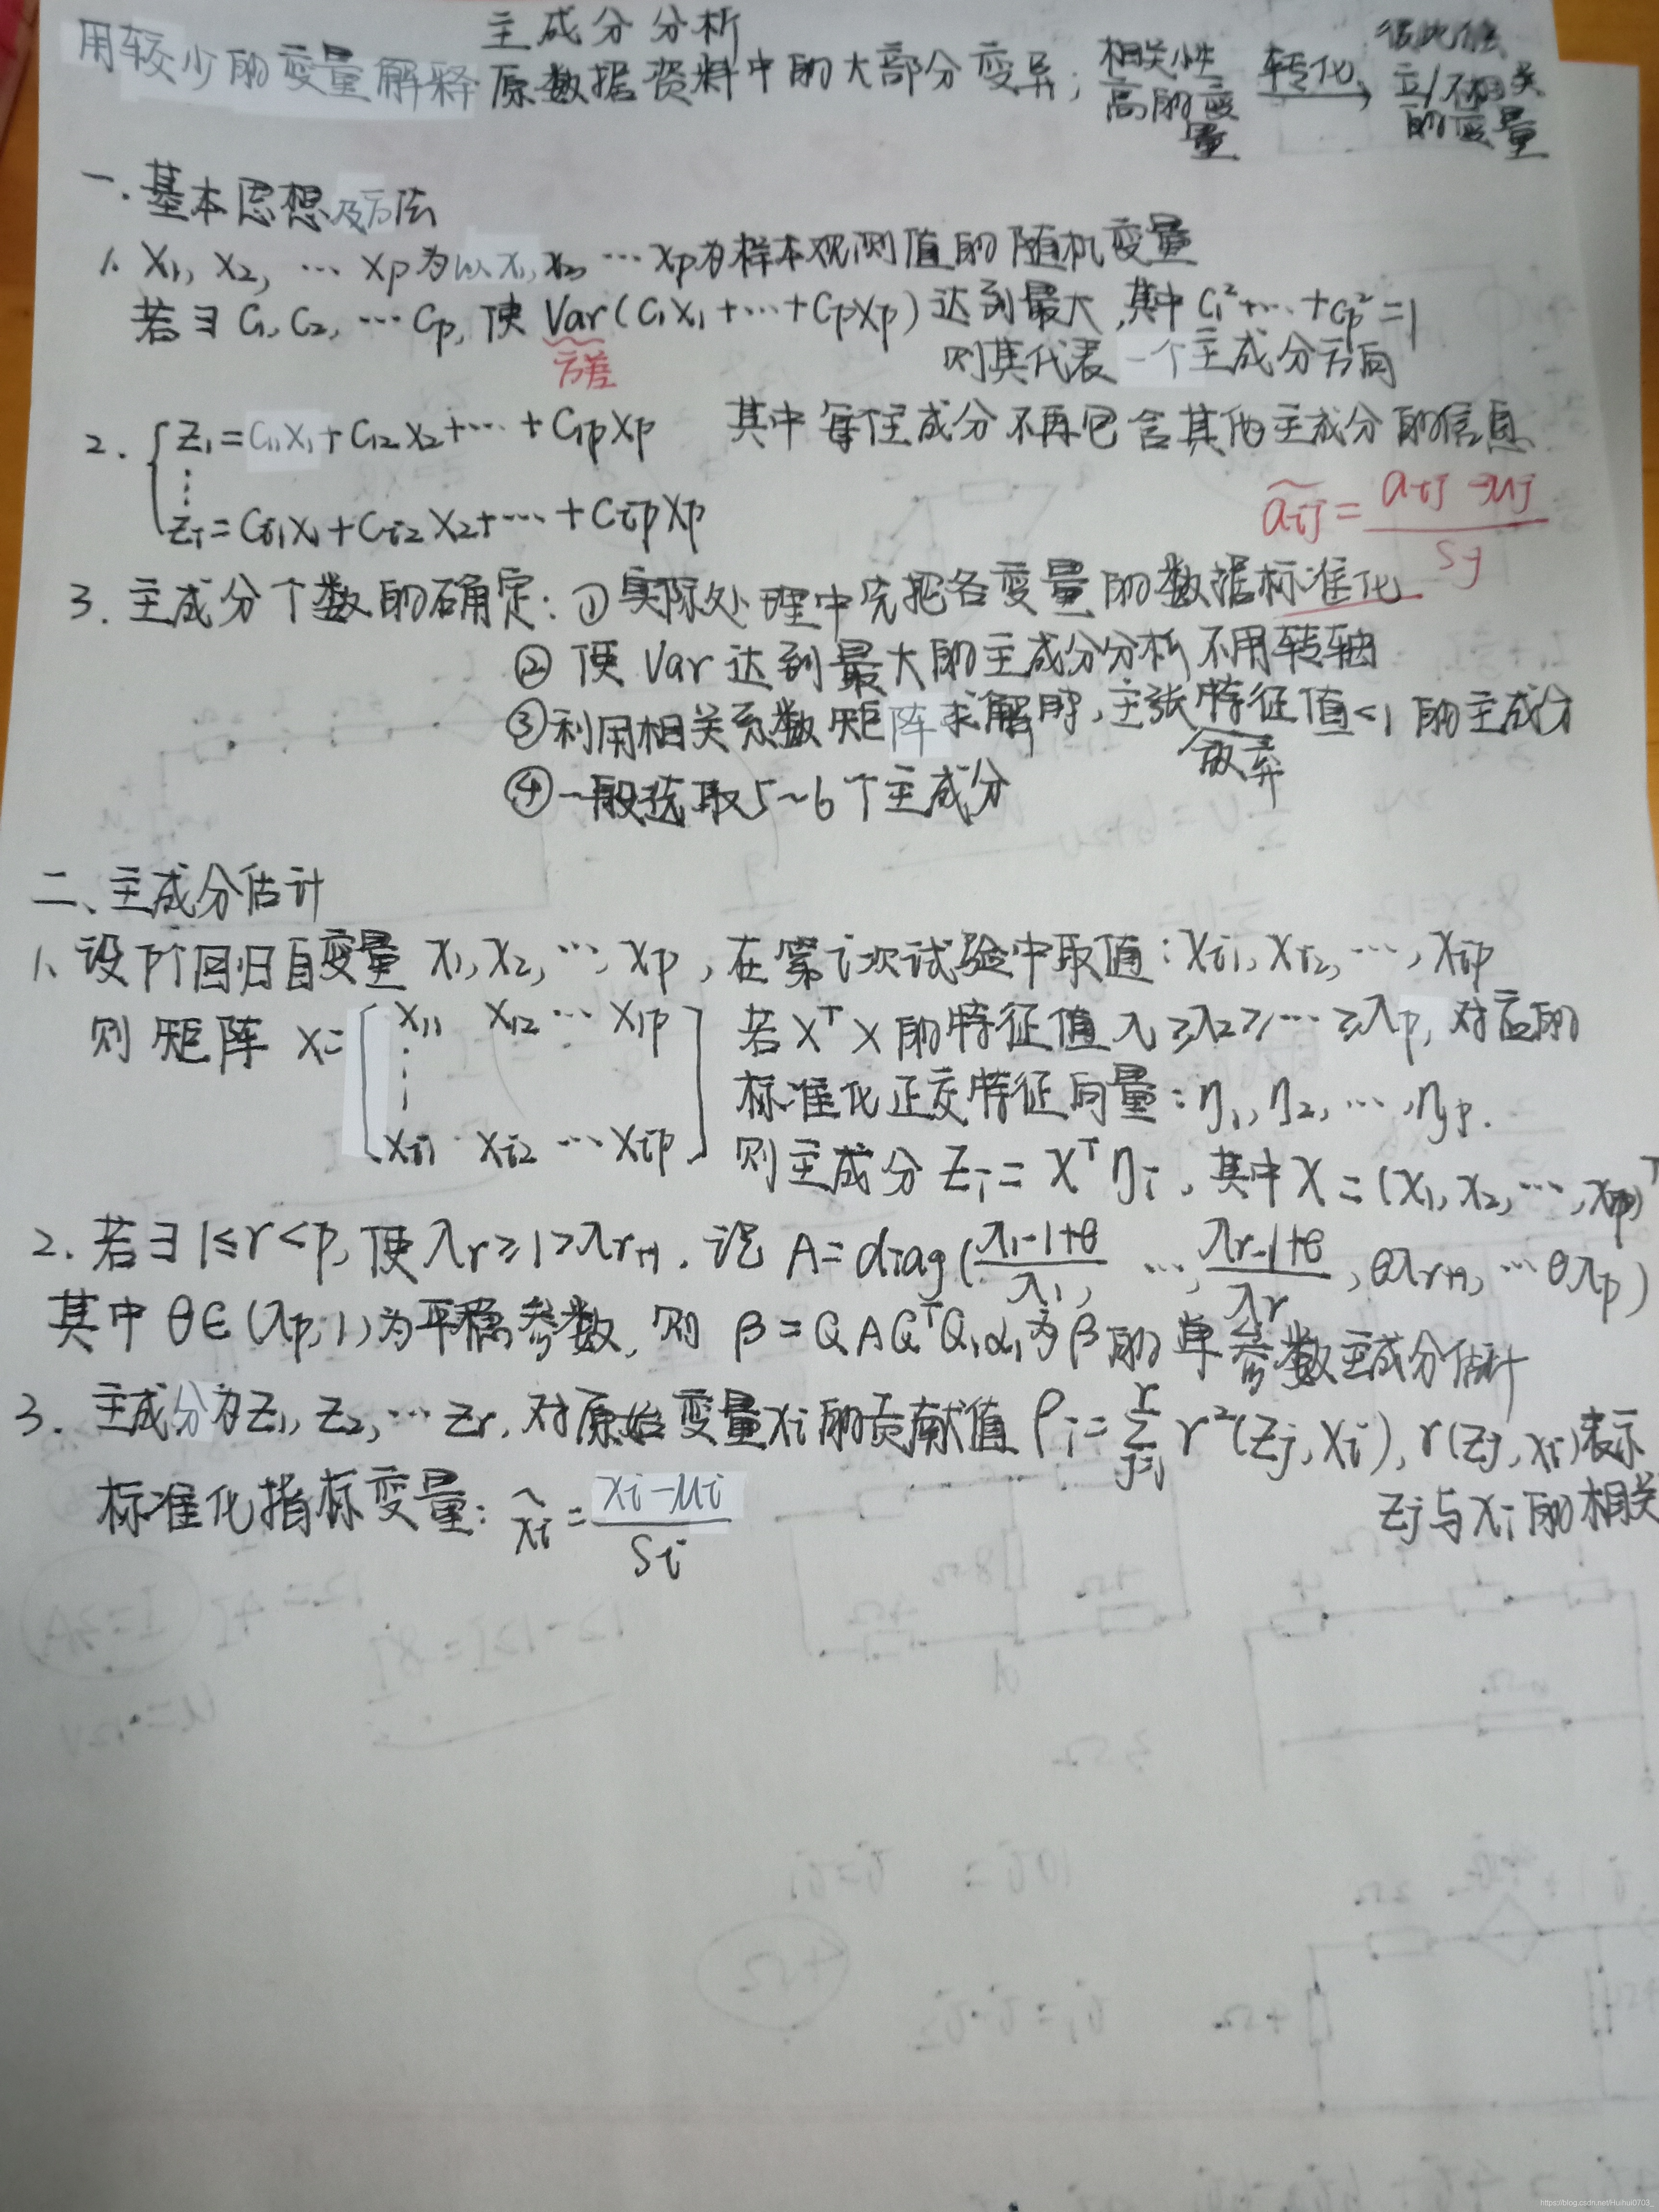 主成分分析
用较少的变量解释原数据资料中的大部分变异; 相关性高的变量 转化→ 彼此独立/不相关的变量
一.基本思想及方法
1. X₁, X₂, … Xp为以x₁, x₂, … xp为样本观测值的随机变量
若∃ C₁, C₂, … Cp, 使 Var(C₁X₁+…+CpXp) 达到最大, 其中 C₁²+…+Cp²=1
方差
则其代表一个主成分方向
2. { Z₁=C₁₁X₁+C₁₂X₂+…+C₁pXp 其中每住成分不再包含其他主成分的信息
⋮
Zᵢ=Cᵢ₁X₁+Cᵢ₂X₂+…+CᵢpXp
ãij = (aij-μj)/sj
3. 主成分个数的确定: ①实际处理中先把各变量的数据标准化
② 使 Var 达到最大的主成分分析不用转轴
③利用相关系数矩阵求解时, 主张特征值<1的主成分
放弃
④一般选取5~6个主成分
二、主成分估计
1、设p个回归自变量 x₁, x₂, …, xp, 在第i次试验中取值: xᵢ₁, xᵢ₂, …, xᵢp
则矩阵 X=[x₁₁ x₁₂ … x₁p ⋮ xᵢ₁ xᵢ₂ … xᵢp] 若XᵀX的特征值 λ₁≥λ₂≥…≥λp, 对应的
标准化正交特征向量: η₁, η₂, …, ηp.
则主成分 Zᵢ=Xᵀηᵢ, 其中X=(x₁, x₂, …, xp)ᵀ
2. 若∃ 1≤r<p, 使λr≥1>λr+1. 记 A=diag((λ₁-1+θ)/λ₁, …, (λr-1+θ)/λr, θλr+1, … θλp)
其中 θ∈(λp, 1)为平稳参数, 则 β=QAQᵀQ₁α₁为β的单参数主成分估计
3. 主成分为Z₁, Z₂, … Zr, 对原始变量xᵢ的贡献值 ρᵢ=∑ʳⱼ₌₁ r²(Zj, xᵢ), r(Zj, xᵢ)表示
Zj与xᵢ的相关
标准化指标变量: x̂ᵢ=(xᵢ-μᵢ)/Sᵢ
https://blog.csdn.net/Huihui0703_